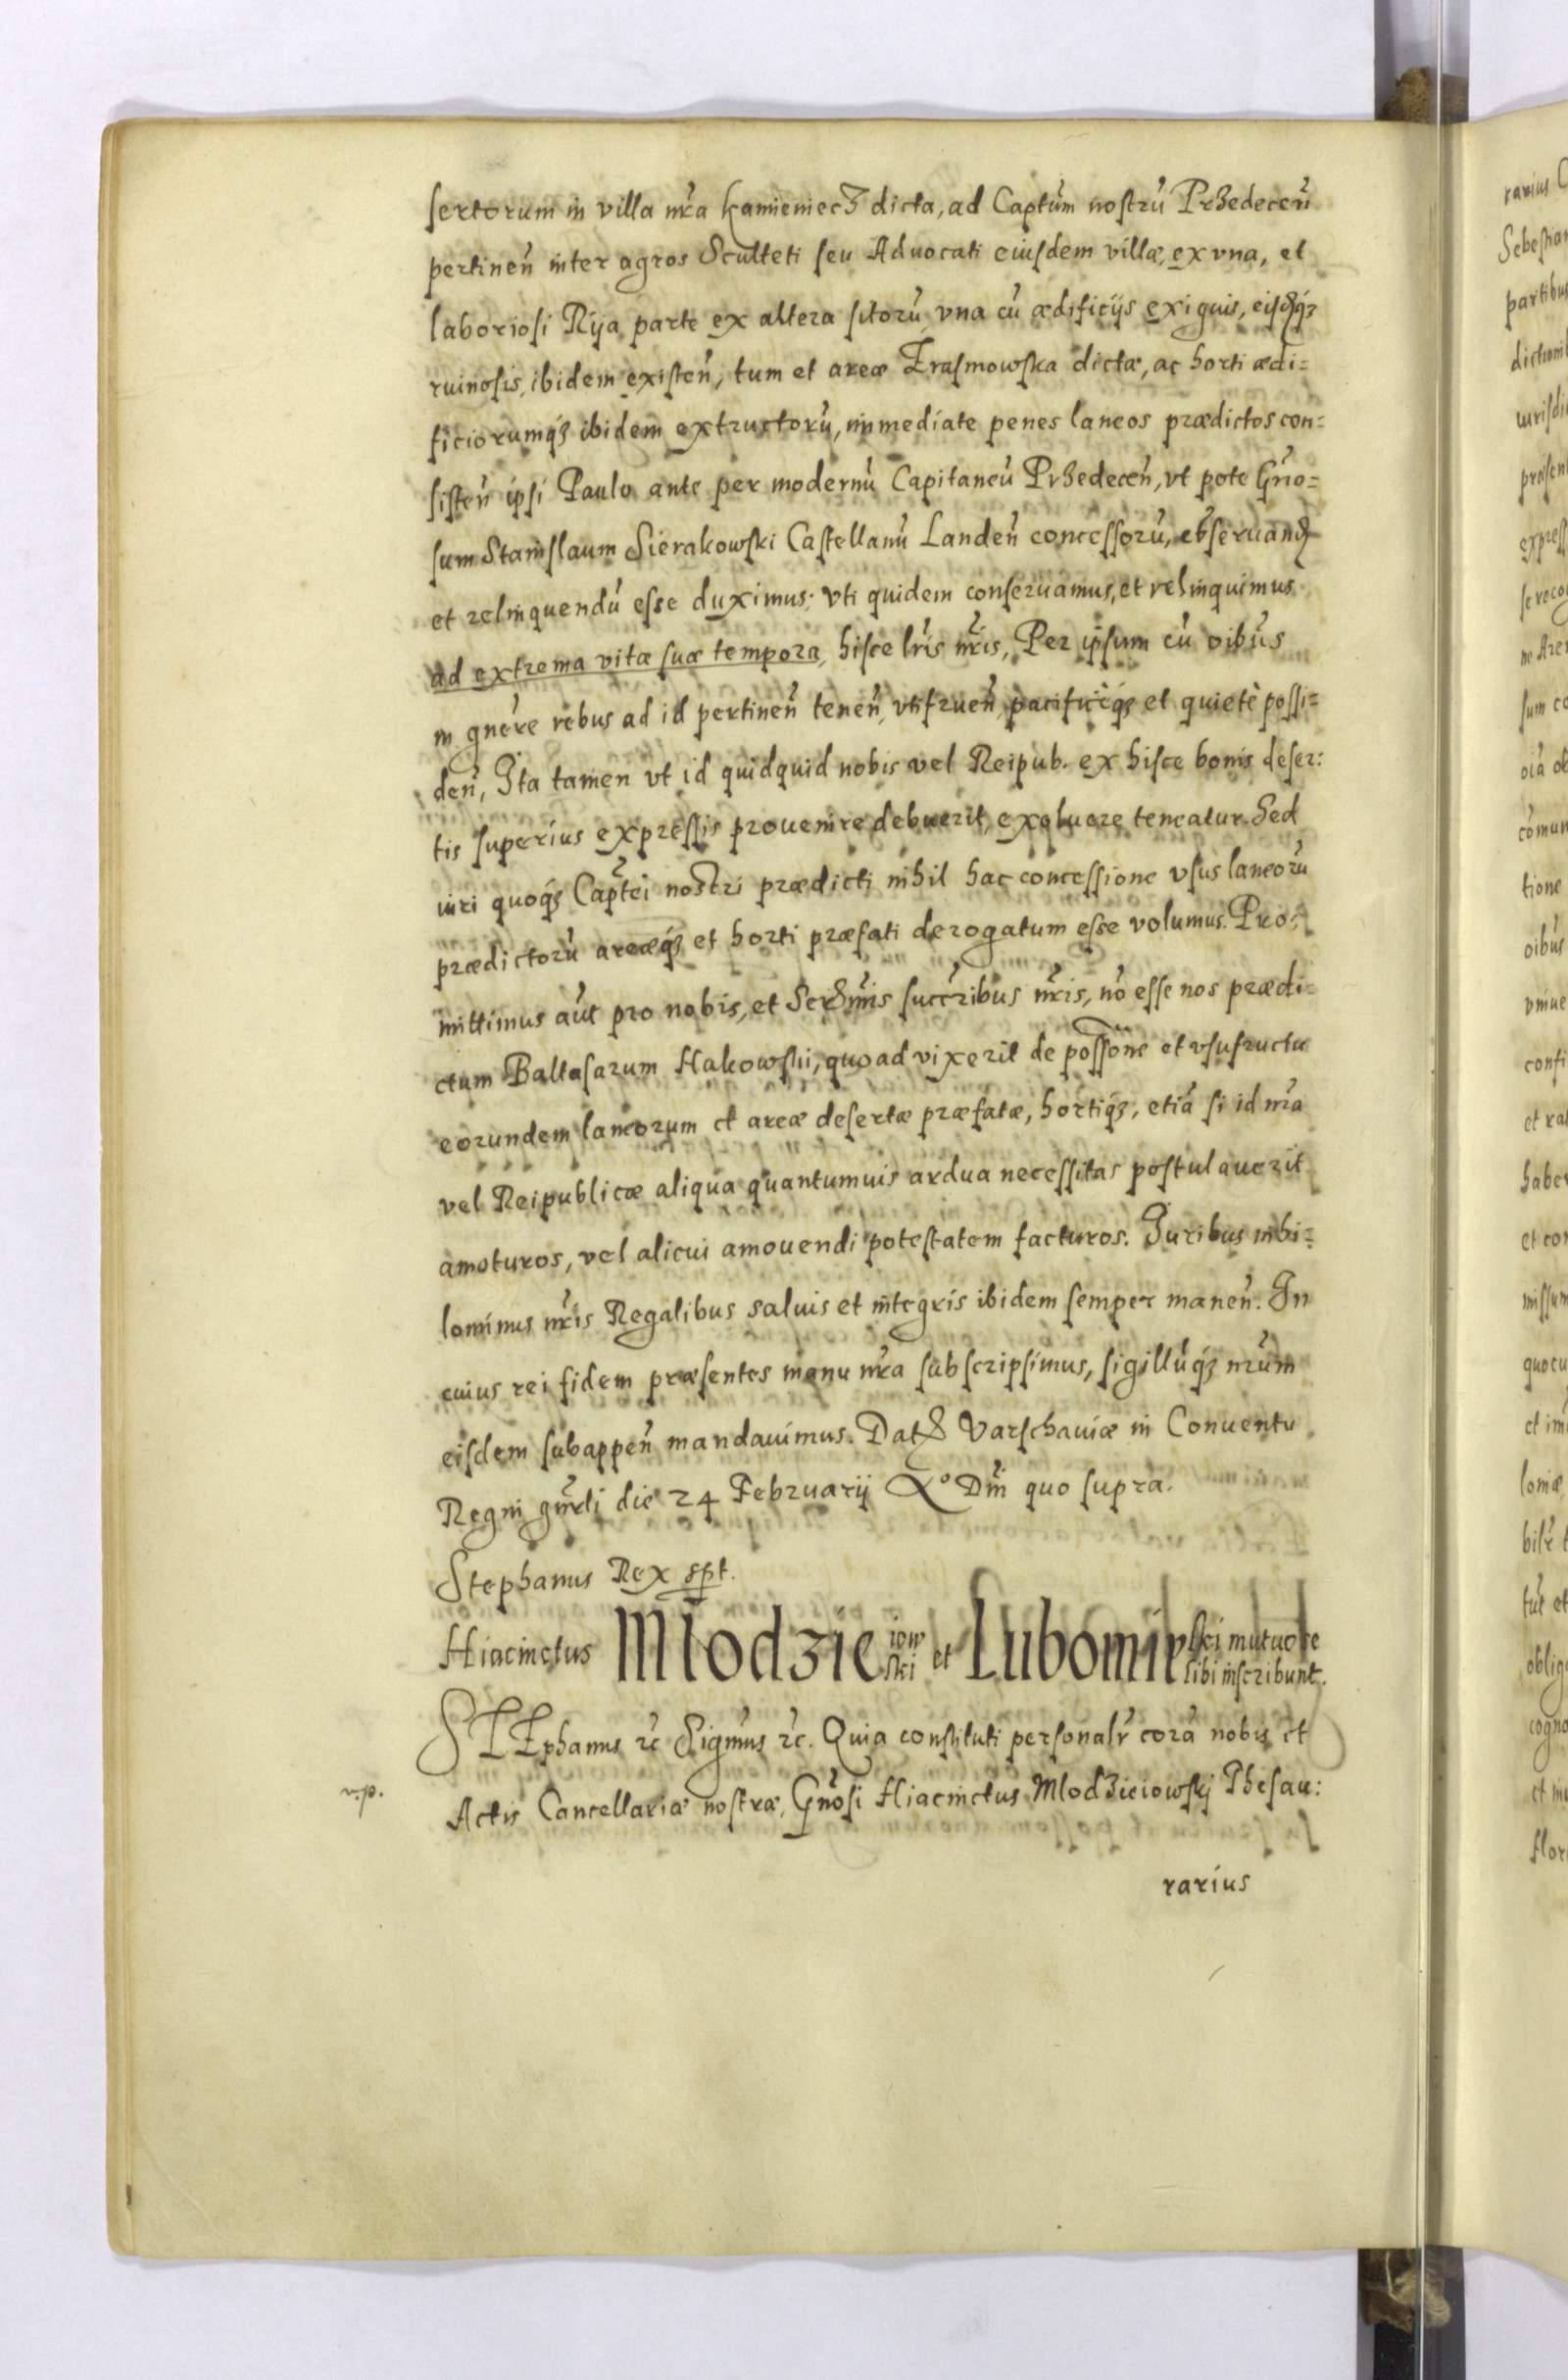 sertorum in villa nr̃a Kamieniecz dicta, ad Captũm nostrũ Przedeceñ
pertineñ inter agros Sculteti seu Advocati eiusdem villæ, ex vna, et
laboriosi Rija parte ex altera sitorũ, vna cũ ædificijs exiguis, eisdqꝫ
ruinosis, ibidem existeñ, tum et areæ Erasmowska dictæ, ac horti ædi=
ficiorumqꝫ ibidem extructorũ, immediate penes laneos prædictos con=
sisteñ ipsi Paulo ante per modernũ Capitaneũ Przedeceñ, vt pote Gño=
sum Stanislaum Sierakowski Castellanũ Landeñ concessorũ, obseruand
et relinquendũ esse duximus; vti quidem conseruamus, et relinquimus
ad extrema vitæ suæ tempora, hisce lr̃is nr̃is, Per ipsum cũ oĩbus
in gñere rebus ad id pertineñ teneñ, vtifrueñ, pacificèqꝫ et quietè possi=
deñ, Ita tamen vt id quidquid nobis vel Reipub. ex hisce bonis deser:
tis superius expressis prouenire debuerit, exoluere teneatur. Sed
iuri quoqꝫ Captẽi nostri prædicti nihil hac concessione vsus laneorũ
prædictorũ areæqꝫ et horti præfati derogatum esse volumus. Pro=
mittimus aũt pro nobis, et Serẽmis succr̃ibus nr̃is, nõ esse nos prædi=
ctum Baltasarum Hakowski, quoad vixerit de possõne et vsufructu
eorundem laneorum et areæ desertæ præfatæ, hortiqꝫ, etiã si id nr̃a
vel Reipublicæ aliqua quantumuis ardua necessitas postulauerit
amoturos, vel alicui amouendi potestatem facturos. Iuribus nihi=
lominus nr̃is Regalibus saluis et integris ibidem semper maneñ. In
cuius rei fidem præsentes manu nr̃a subscripsimus, sigillũqꝫ nr̃um
eisdem subappeñ mandauimus. Dat Varschauiæ in Conuentu
Regni gñrli die 24 Februarij Aº Dñi quo supra.
Stephanus Rex spt.
Hiacinctus Mlodzieiowski et Lubomirski mutuo re sibi inscribunt.
STEphanus rc Sigm̃us rc. Quia constituti personalr̃ corã nobis et
v.p.
Actis Cancellariæ nostræ, Gñosi Hiacinctus Mlodzieiowskj Thesau:
rarius